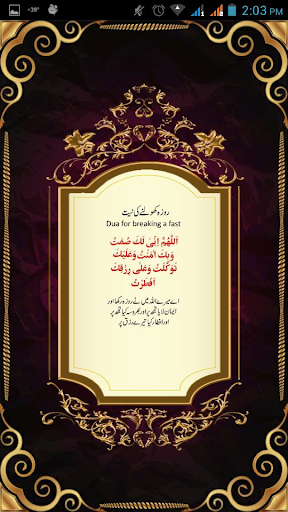 -39°
2:03 PM
روزہ کھولنے کی نیت
Dua for breaking a fast
اَللّٰهُمَّ اِنِّی لَكَ صُمْتُ
وَبِكَ اٰمَنْتُ وَعَلَيْكَ
تَوَكَّلْتُ وَعَلٰی رِزْقِكَ
اَفْطَرْتُ
اے میرے اللہ میں نے روزہ رکھا اور
ایمان لایا تجھ پر اور بھروسہ کیا تجھ پر
اور افطار کیا تیرے رزق پر